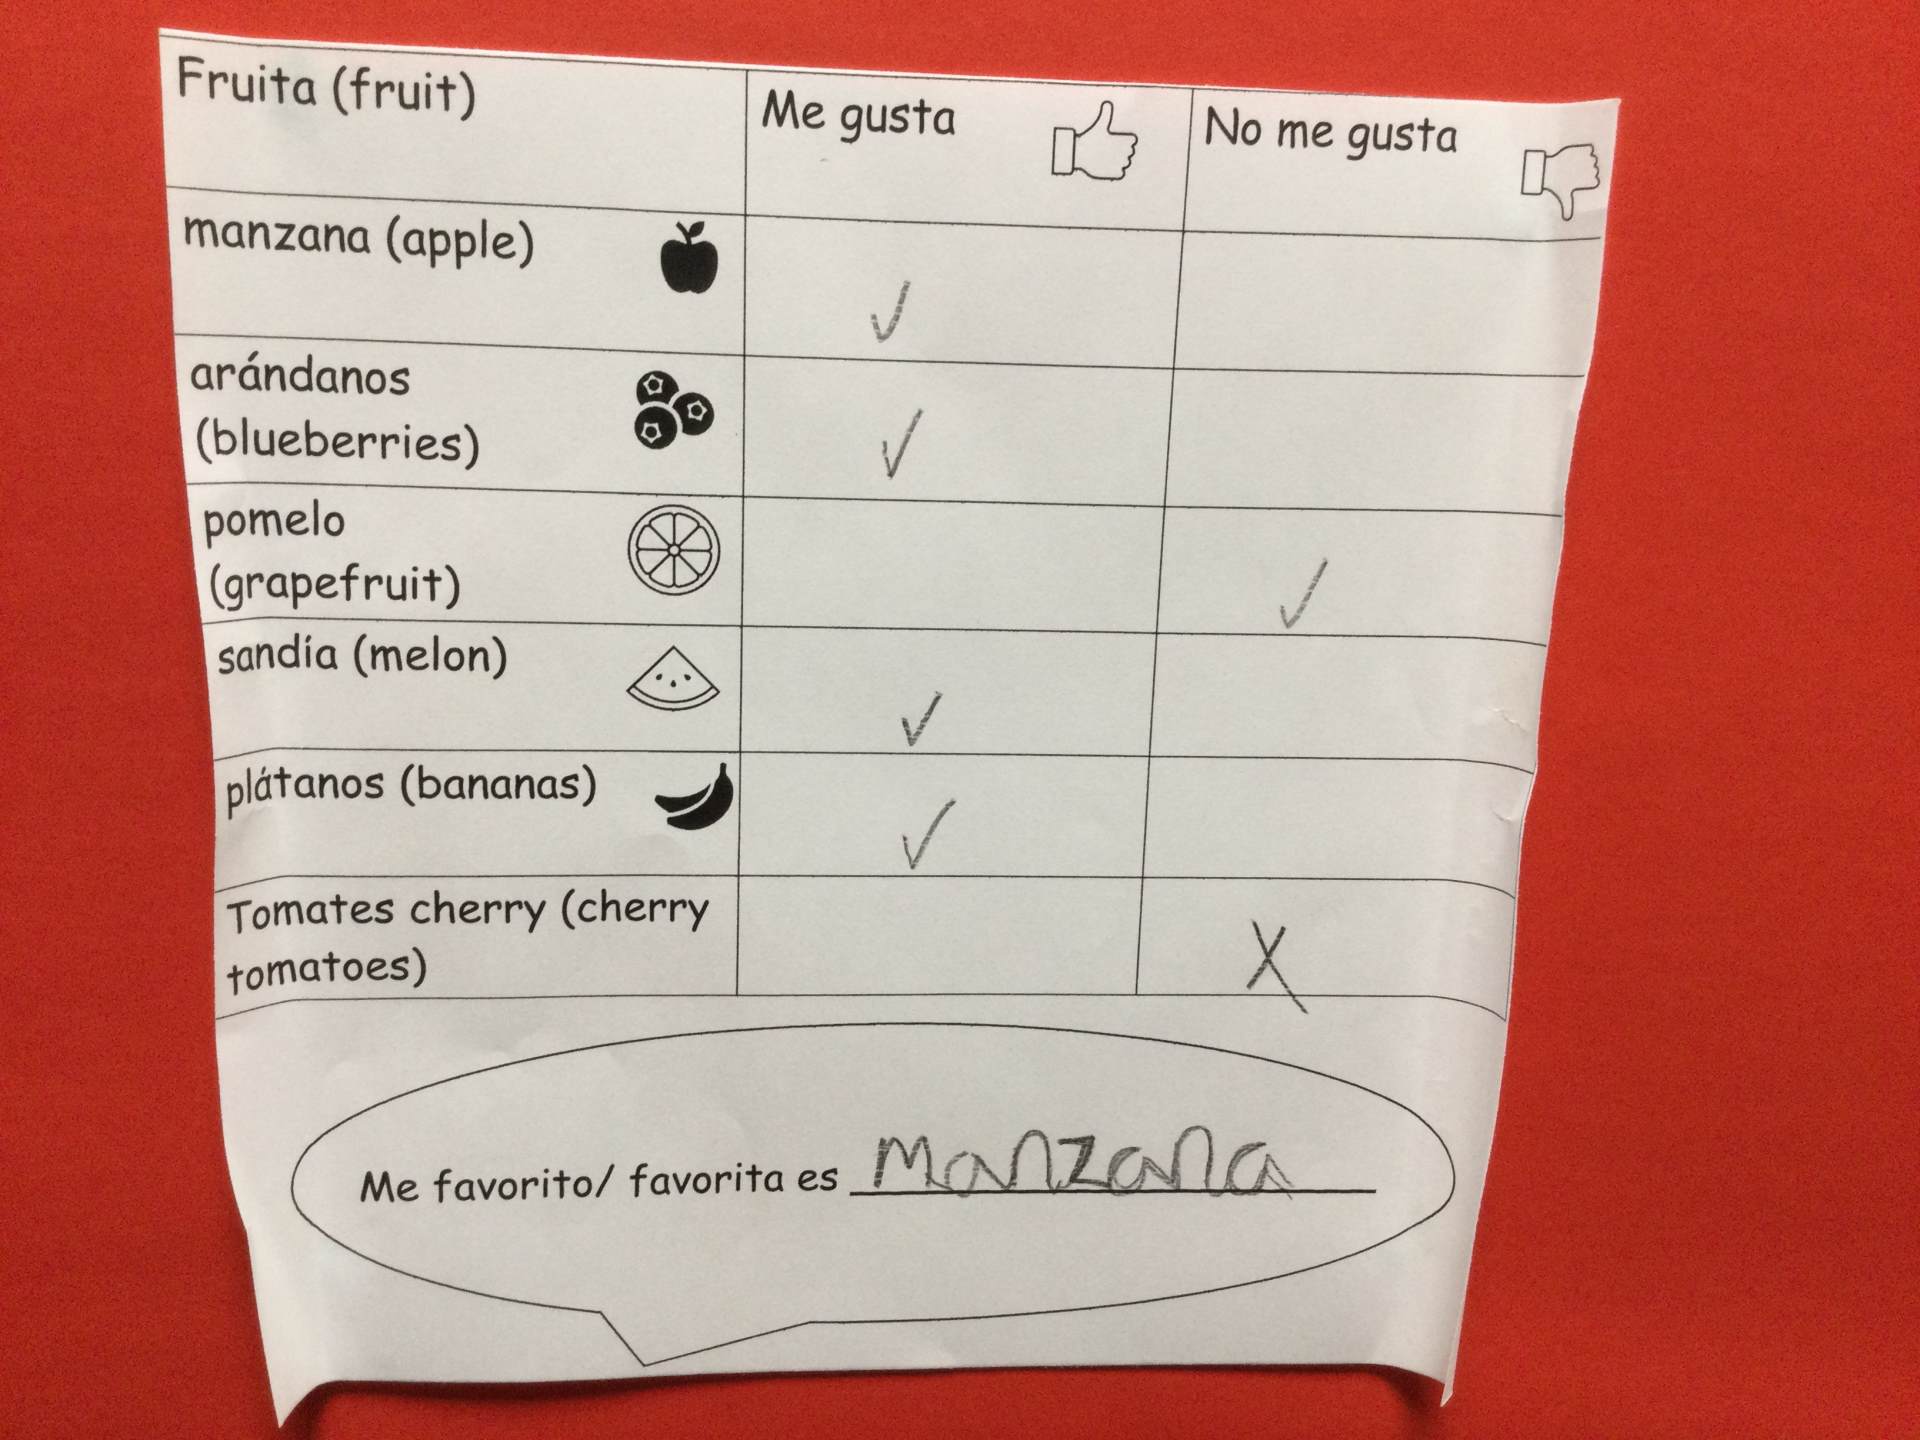 Fruita (fruit) Me gusta No me gusta
manzana (apple) ✓
arándanos
(blueberries) ✓
pomelo
(grapefruit) ✓
sandía (melon) ✓
plátanos (bananas) ✓
Tomates cherry (cherry
tomatoes) X
Me favorito/ favorita es manzana